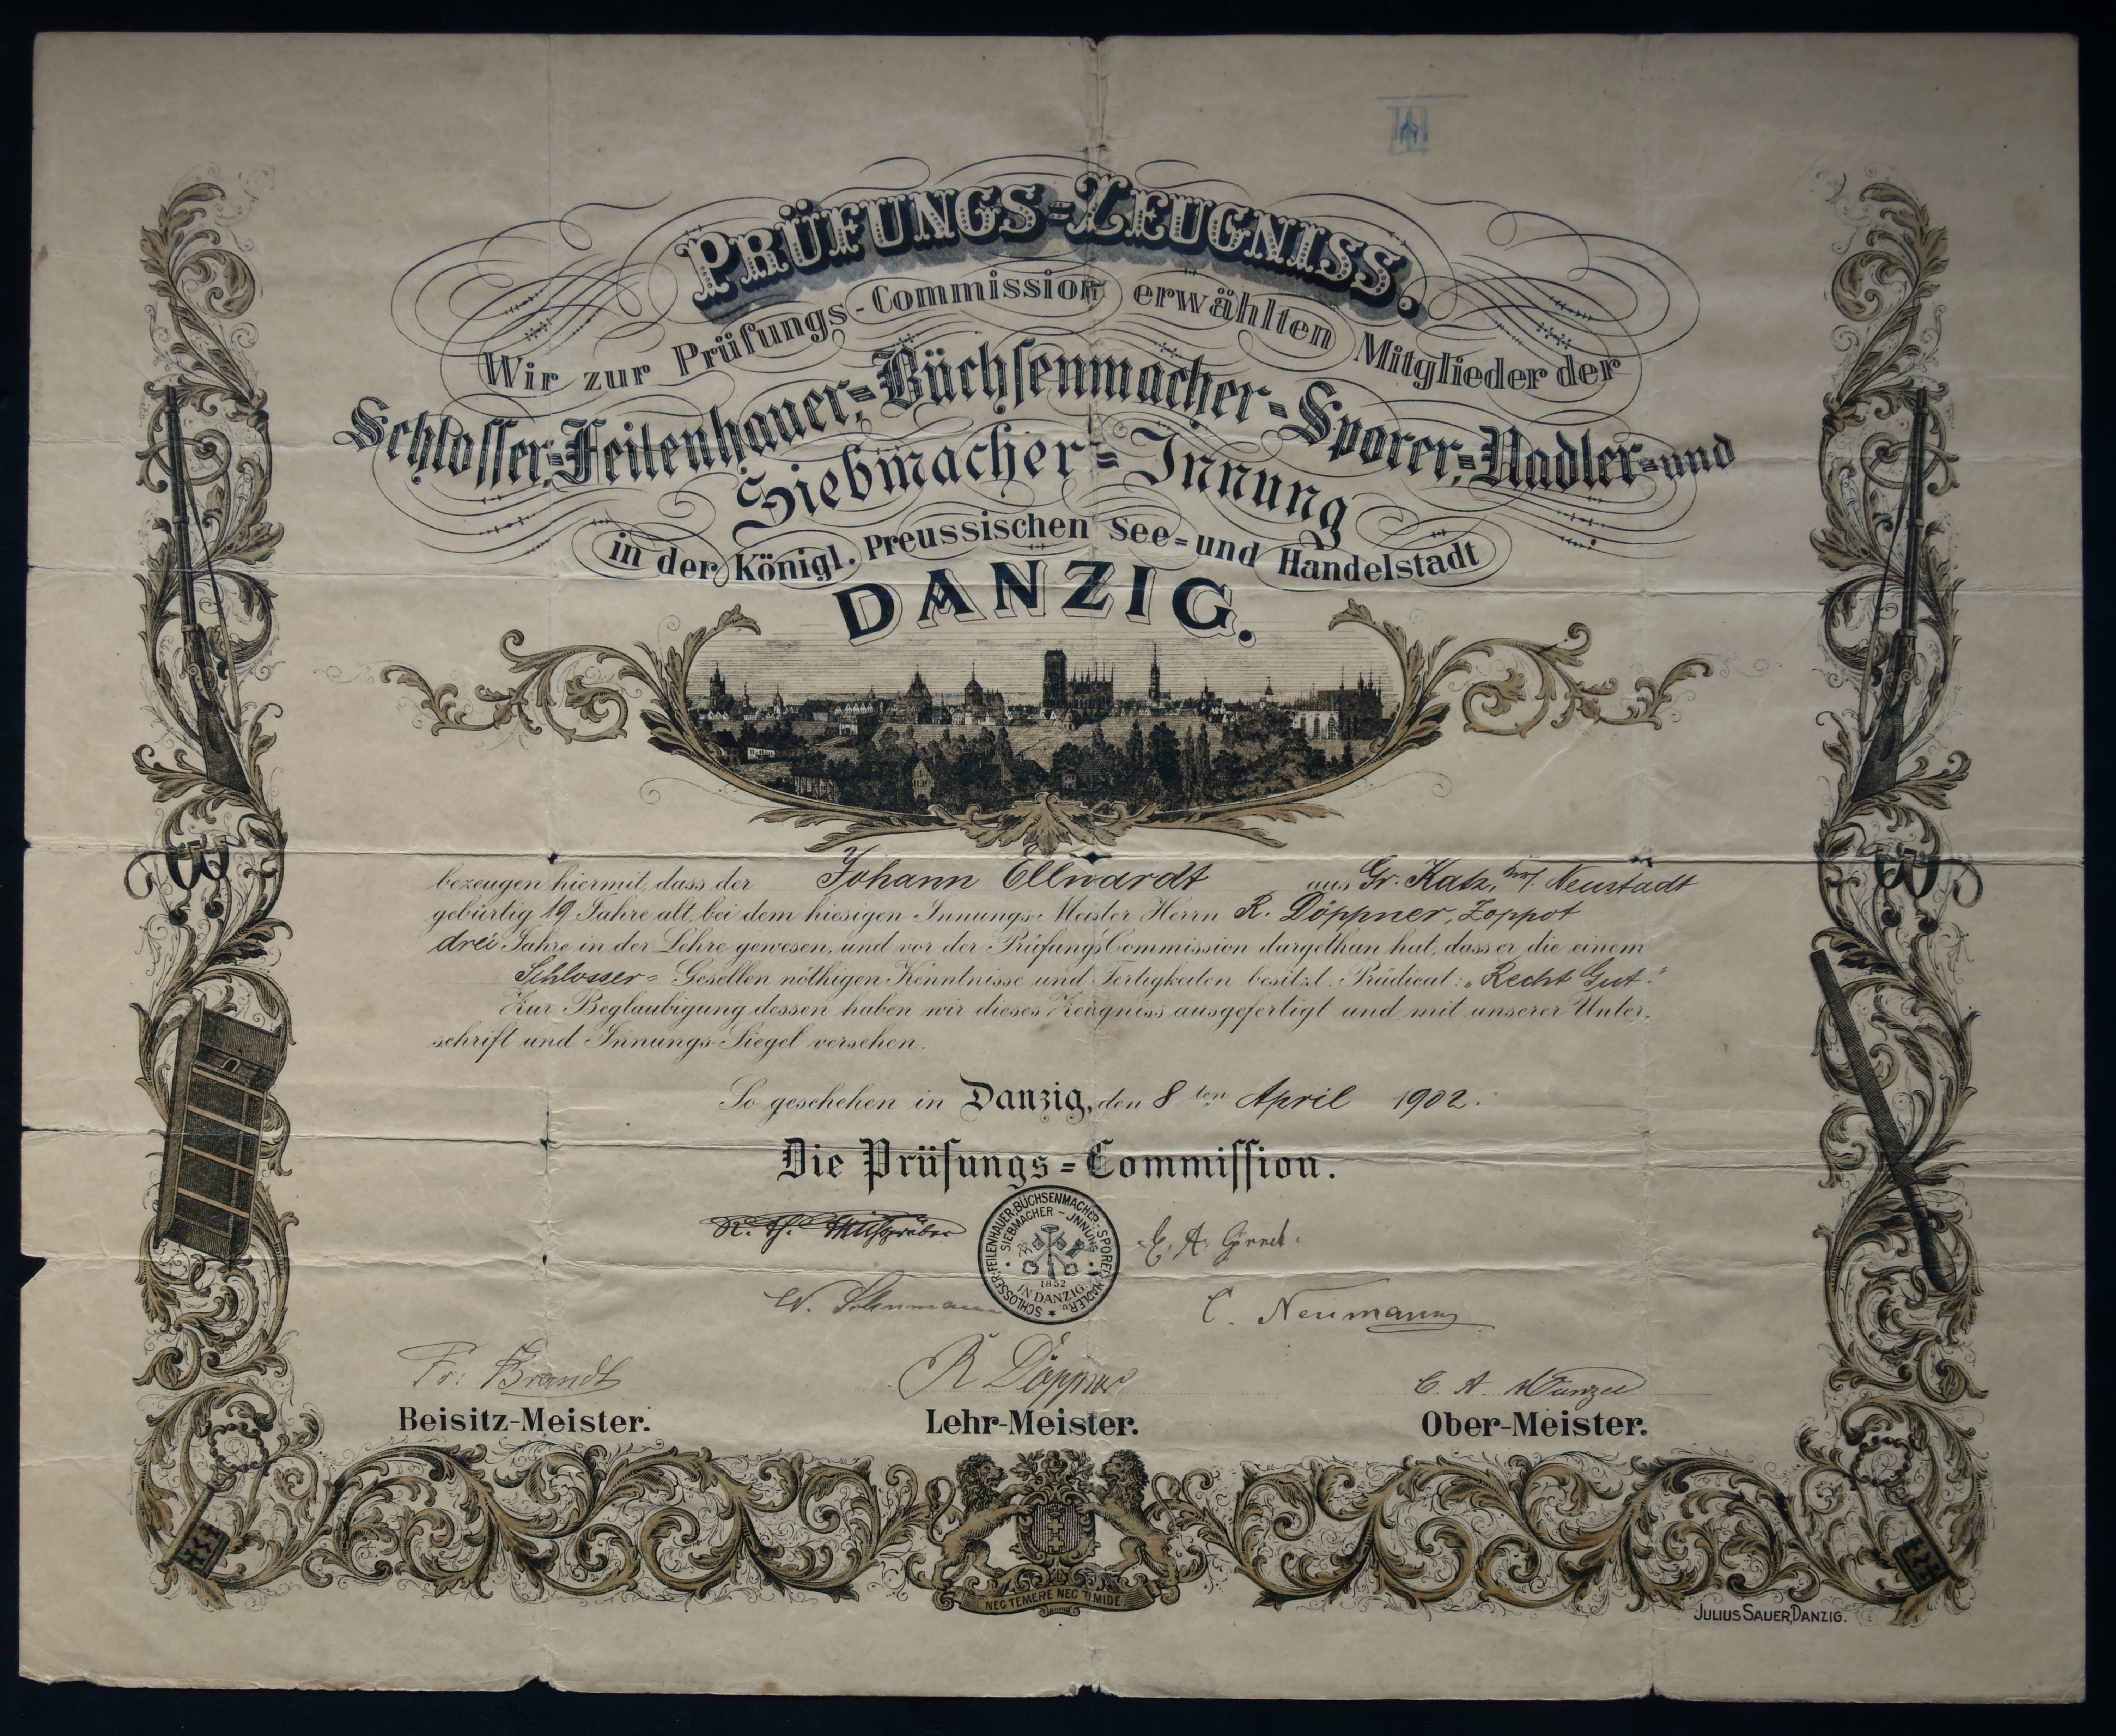 PRÜFUNGS-ZEUGNISS.
Wir zur Prüfungs-Commission erwählten Mitglieder der
Schlosser-, Feilenhauer-, Büchsenmacher-, Sporer-, Nadler- und
Siebmacher-Innung
in der Königl. Preussischen See- und Handelstadt
DANZIG.
bezeugen hiermit, dass der Johann Ellwardt aus Gr. Katz, Neustadt
gebürtig 19 Jahre alt, bei dem hiesigen Innungs-Meister Herrn R. Döppner, Zoppot
drei Jahre in der Lehre gewesen, und vor der Prüfungs Commission dargethan hat, dass er die einem
Schlosser- Gesellen nöthigen Kenntnisse und Fertigkeiten besitzt. Prädicat: „Recht Gut."
Zur Beglaubigung dessen haben wir dieses Zeugniss ausgefertigt und mit unserer Unter-
schrift und Innungs-Siegel versehen.
So geschehen in Danzig, den 8 ten April 1902.
Die Prüfungs-Commission.
SCHLOSSER-, FEILENHAUER-, BÜCHSENMACHER-, SPORER-, NADLER- u.
SIEBMACHER-JNNUNG
1852
IN DANZIG.
E. A.
C. Neumann
Fr. Brandt R Döppner C. A.
Beisitz-Meister. Lehr-Meister. Ober-Meister.
NEC TEMERE NEC TIMIDE
JULIUS SAUER, DANZIG.